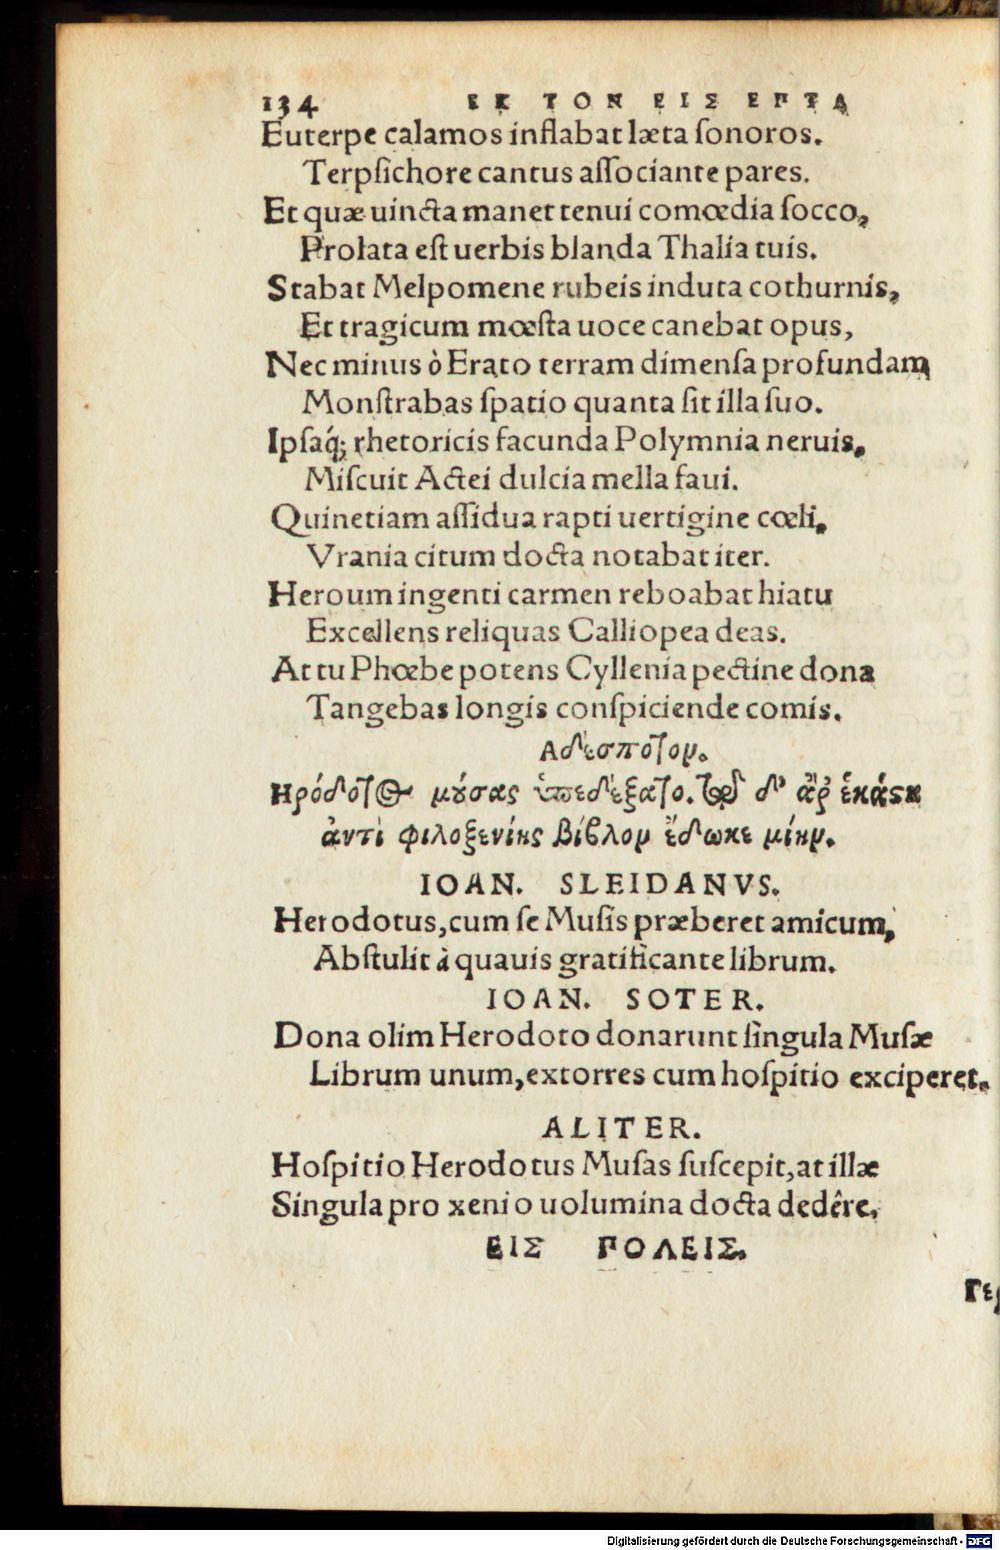 134 ΕΚ ΤΟΝ ΕΙΣ ΕΠΤΑ
Euterpe calamos inflabat læta ſonoros.
Terpſichore cantus aſſociante pares.
Et quæ uincta manet tenui comœdia ſocco,
Prolata eſt uerbis blanda Thalia tuis.
Stabat Melpomene rubeis induta cothurnis,
Et tragicum mœſta uoce canebat opus,
Nec minus ò Erato terram dimenſa profundam
Monſtrabas ſpatio quanta ſit illa ſuo.
Ipſaq́; rhetoricis facunda Polymnia neruis,
Miſcuit Actei dulcia mella faui.
Quinetiam aſſidua rapti uertigine cœli,
Vrania citum docta notabat iter.
Heroum ingenti carmen reboabat hiatu
Excellens reliquas Calliopea deas.
At tu Phœbe potens Cyllenia pectine dona
Tangebas longis conſpiciende comis.
Αδέσποτον.
Ηρόδοτος μούσας ὑπεδέξατο. τῷ δ’ ἄρ ἑκάστη
ἀντὶ φιλοξενίης βίβλον ἔδωκε μίην.
IOAN. SLEIDANVS.
Herodotus, cum ſe Muſis præberet amicum,
Abſtulit à quauis gratificante librum.
IOAN. SOTER.
Dona olim Herodoto donarunt ſingula Muſæ
Librum unum, extorres cum hoſpitio exciperet.
ALITER.
Hoſpitio Herodotus Muſas ſuſcepit, at illæ
Singula pro xenio uolumina docta dedêre.
ΕΙΣ ΠΟΛΕΙΣ.
Γερ
Digitalisierung gefördert durch die Deutsche Forschungsgemeinschaft - DFG